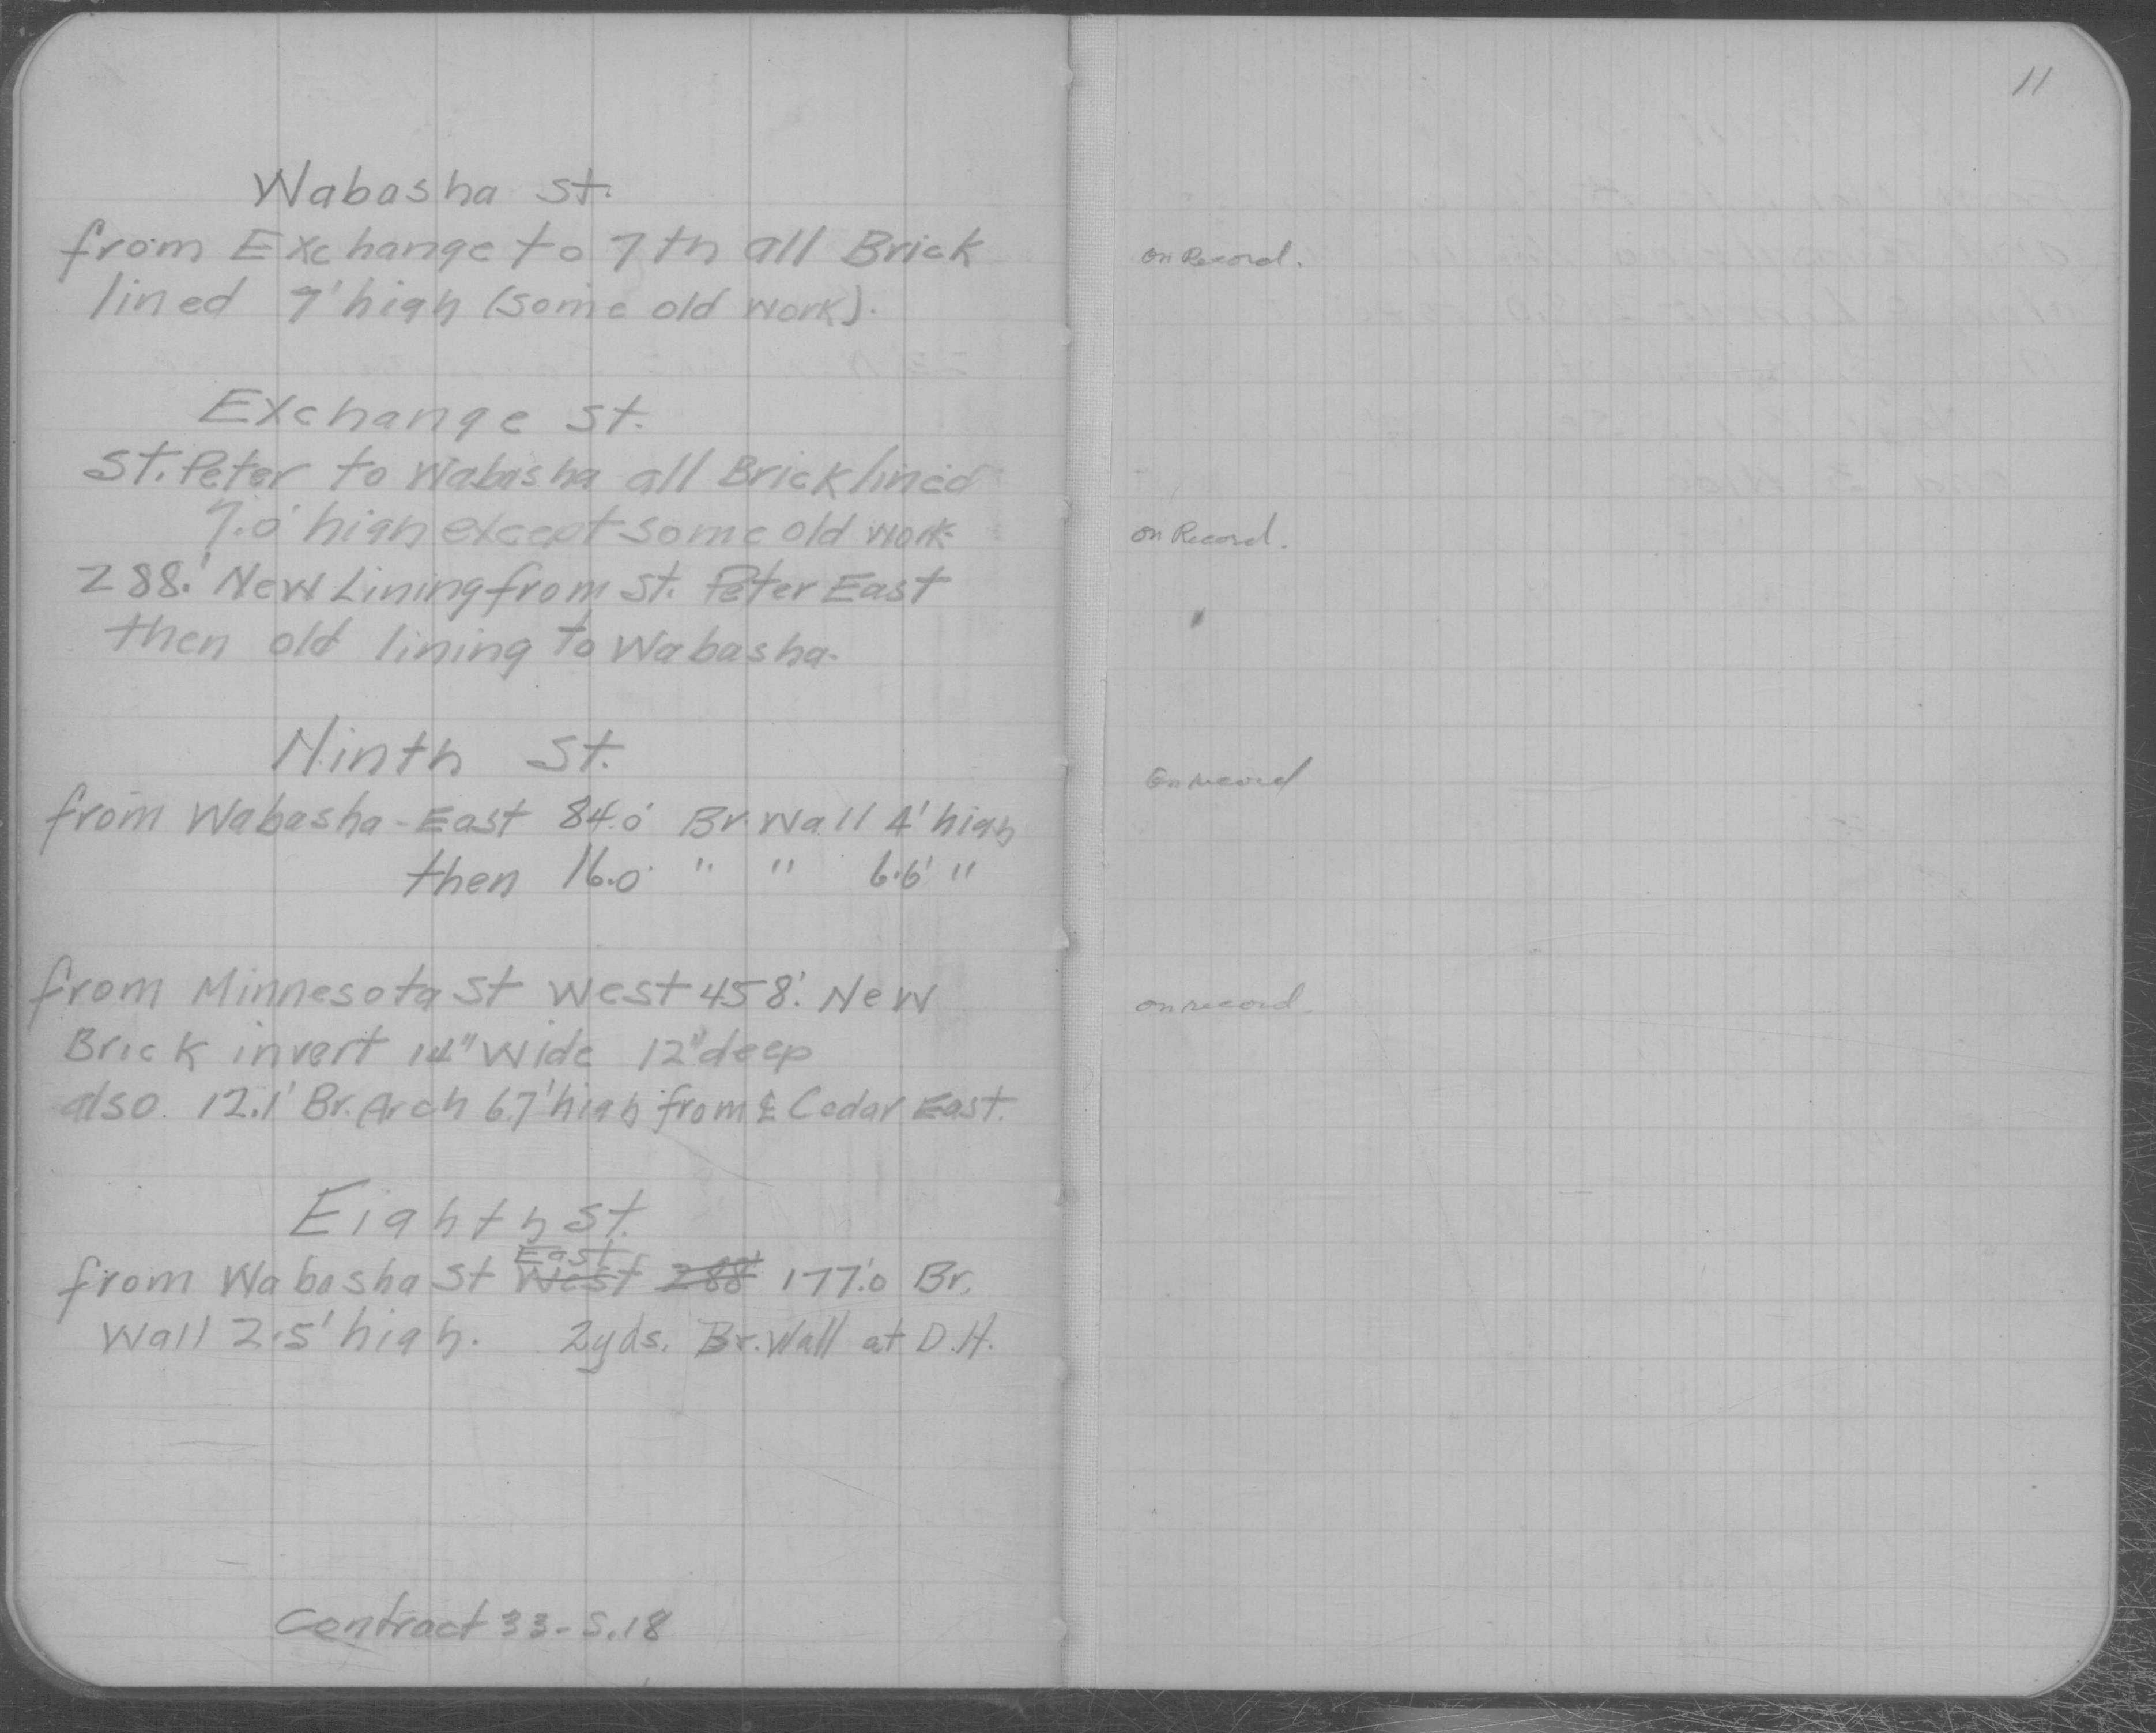 11
Wabasha St.
from Exchange to 7th all Brick
lined 7' high (some old work).
on Record.
Exchange St.
St. Peter to Wabasha all Brick lined
7.0' high except some old work
on Record.
288.' New Lining from St. Peter East
then old lining to Wabasha.
Ninth St.
from Wabasha - East 84.0' Br. Wall 4' high
On record
then 16.0' " " 6.6' "
from Minnesota St West 458.' New
on record.
Brick invert 14" wide 12" deep
also. 12.1' Br. Arch 6.7' high from ℄ Cedar East.
Eighth St.
East
from Wabasha St West 288' 177.'0 Br.
Wall 2.5' high. 2 yds. Br. Wall at D.H.
Contract 33-S.18